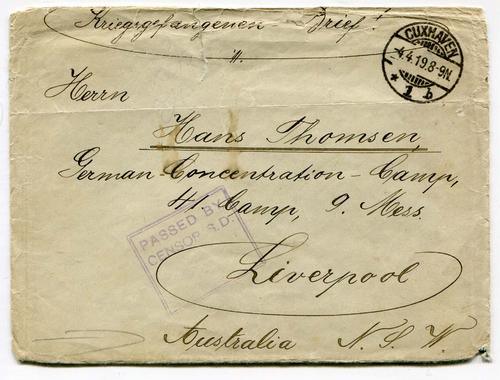 Kriegsgefangenen - Brief!
CUXHAVEN
4.4.19.8-9N.
* 1 b
Herrn
Hans Thomsen,
German-Concentration-Camp,
41. Camp, 9. Mess.
PASSED BY
CENSOR S.D.
Liverpool
Australia N. S. W.